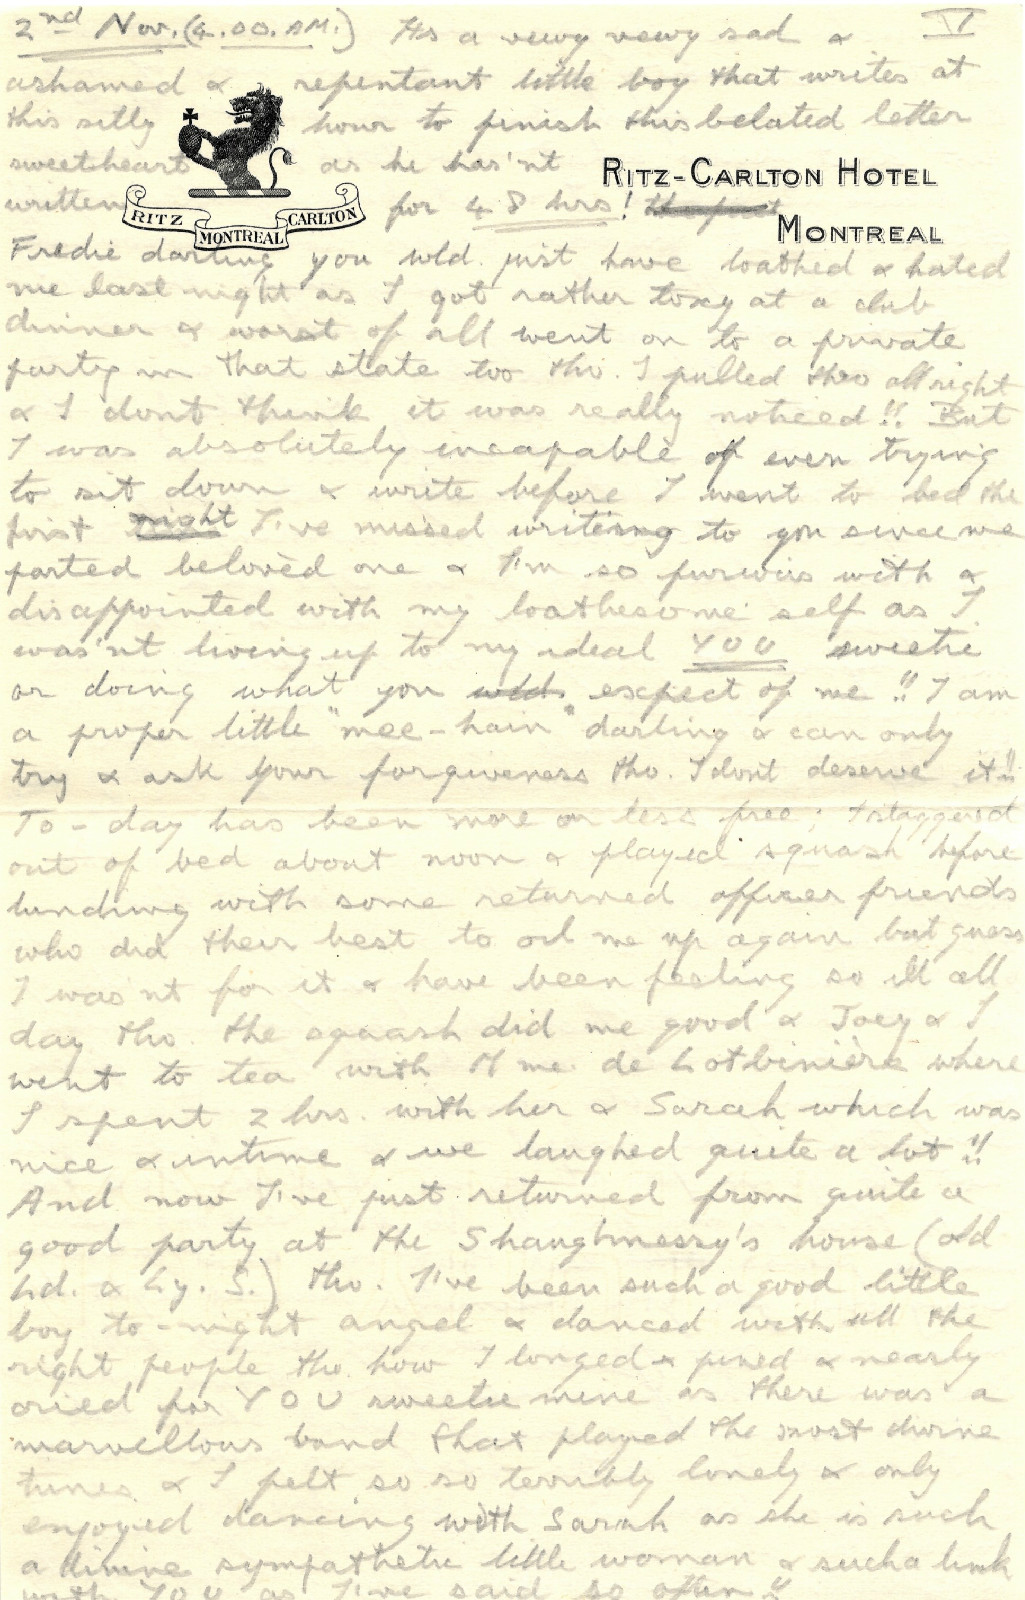 2nd Nov. (4.00. A.M.) Its a vewy vewy sad & VI
ashamed & repentant little boy that writes at
this silly hour to finish this belated letter
sweetheart as he has'nt
RITZ-CARLTON HOTEL
written for 48 hrs!
RITZ CARLTON MONTREAL
MONTREAL
Fredie darling you wld. just have loathed & hated
me last night as I got rather toxy at a club
dinner & worst of all went on to a private
party in that state too tho. I pulled thro allright
& I dont think it was really noticed!! But
I was absolutely incapable of even trying
to sit down & write before I went to bed the
first night I've missed writing to you since we
parted belovèd one & I'm so furwius with &
disappointed with my loathesome self as I
was'nt living up to my ideal YOU sweetie
or doing what you wld. expect of me!! I am
a proper little "mee-hain" darling & can only
try & ask your forgiveness tho. I dont deserve it!!
To-day has been more or less free; I staggered
out of bed about noon & played squash before
lunching with some returned officer friends
who did their best to oil me up again but guess
I was'nt for it & have been feeling so ill all
day tho. the squash did me good & Joey & I
went to tea with Mme. de Lotbinière where
I spent 2 hrs. with her & Sarah which was
nice & intime & we laughed quite a lot!!
And now I've just returned from quite a
good party at the Shaughnessy's house (old
Ld. & Ly. S.) tho. I've been such a good little
boy to-night angel & danced with all the
right people tho. how I longed & pined & nearly
cried for YOU sweetie mine as there was a
marvellous band that played the most divine
tunes & I felt so so terribly lonely & only
enjoyed dancing with Sarah as she is such
a divine sympathetic little woman & such a link
with YOU as I've said so often!!